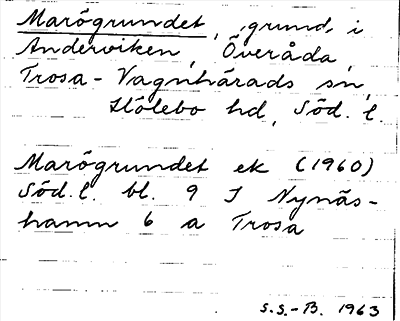 Marögrundet, grund, i
Anderviken, Överåda,
Trosa-Vagnhärads sn,
Hölebo hd, Söd. l.
Marögrundet ek (1960)
Söd. l. bl. 9 I Nynäs-
hamn 6 a Trosa
S.S.-B. 1963